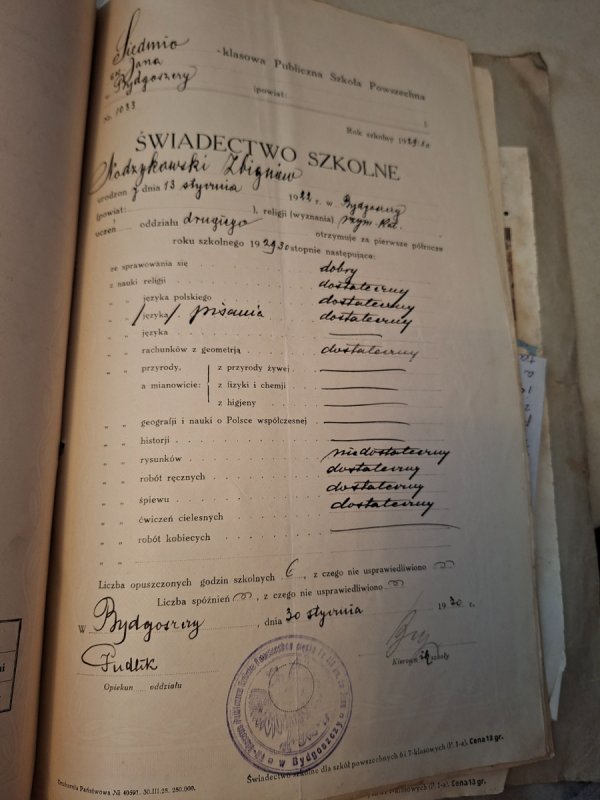 Siedmio -klasowa Publiczna Szkoła Powszechna
św. Jana
w Bydgoszczy (powiat: ).
Nr. 1033
Rok szkolny 1929.30
ŚWIADECTWO SZKOLNE
Nodzykowski Zbigniew
urodzon y dnia 13 stycznia 1922 r. w Bydgoszczy
(powiat: ), religji (wyznania) rzym. kat.
uczeń oddziału drugiego otrzymuje za pierwsze półrocze
roku szkolnego 1929.30 stopnie następujące:
ze sprawowania się dobry
z nauki religji dostateczny
„ „ języka polskiego dostateczny
„ „ języka pisania dostateczny
„ „ języka
„ „ rachunków z geometrją dostateczny
„ „ przyrody, z przyrody żywej
a mianowicie: z fizyki i chemji
z higjeny
„ „ geografji i nauki o Polsce współczesnej
„ „ historji
„ „ rysunków niedostateczny
„ „ robót ręcznych dostateczny
„ „ śpiewu dostateczny
„ „ ćwiczeń cielesnych dostateczny
„ „ robót kobiecych
„ „
Liczba opuszczonych godzin szkolnych 6, z czego nie usprawiedliwiono
Liczba spóźnień , z czego nie usprawiedliwiono
W Bydgoszczy, dnia 30 stycznia 1930. r.
Fudlik
Opiekun oddziału
Kierown ik szkoły
w Bydgoszczy
Drukarnia Państwowa № 40591. 30.III.28. 250.000.
Świadectwo szkolne dla szkół powszechnych 6 i 7-klasowych (P. 1-a). Cena 13 gr.
powszechnych 6 i 7-klasowych (P. 1-a). Cena 13 gr.